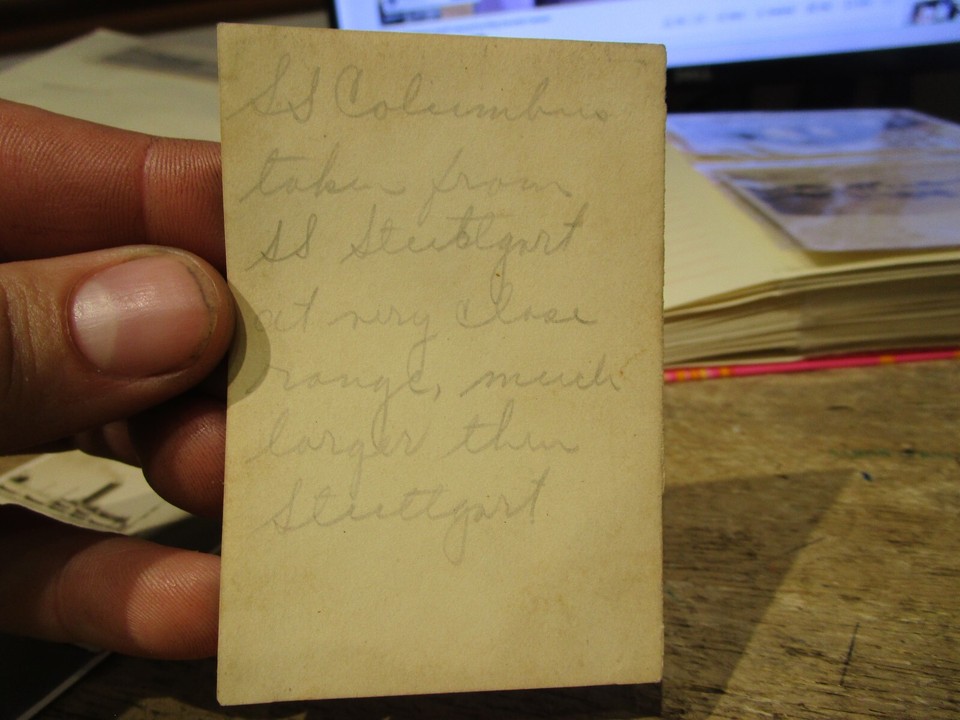 SS Columbus
taken from
SS Stuttgart
at very close
range, much
larger then
Stuttgart